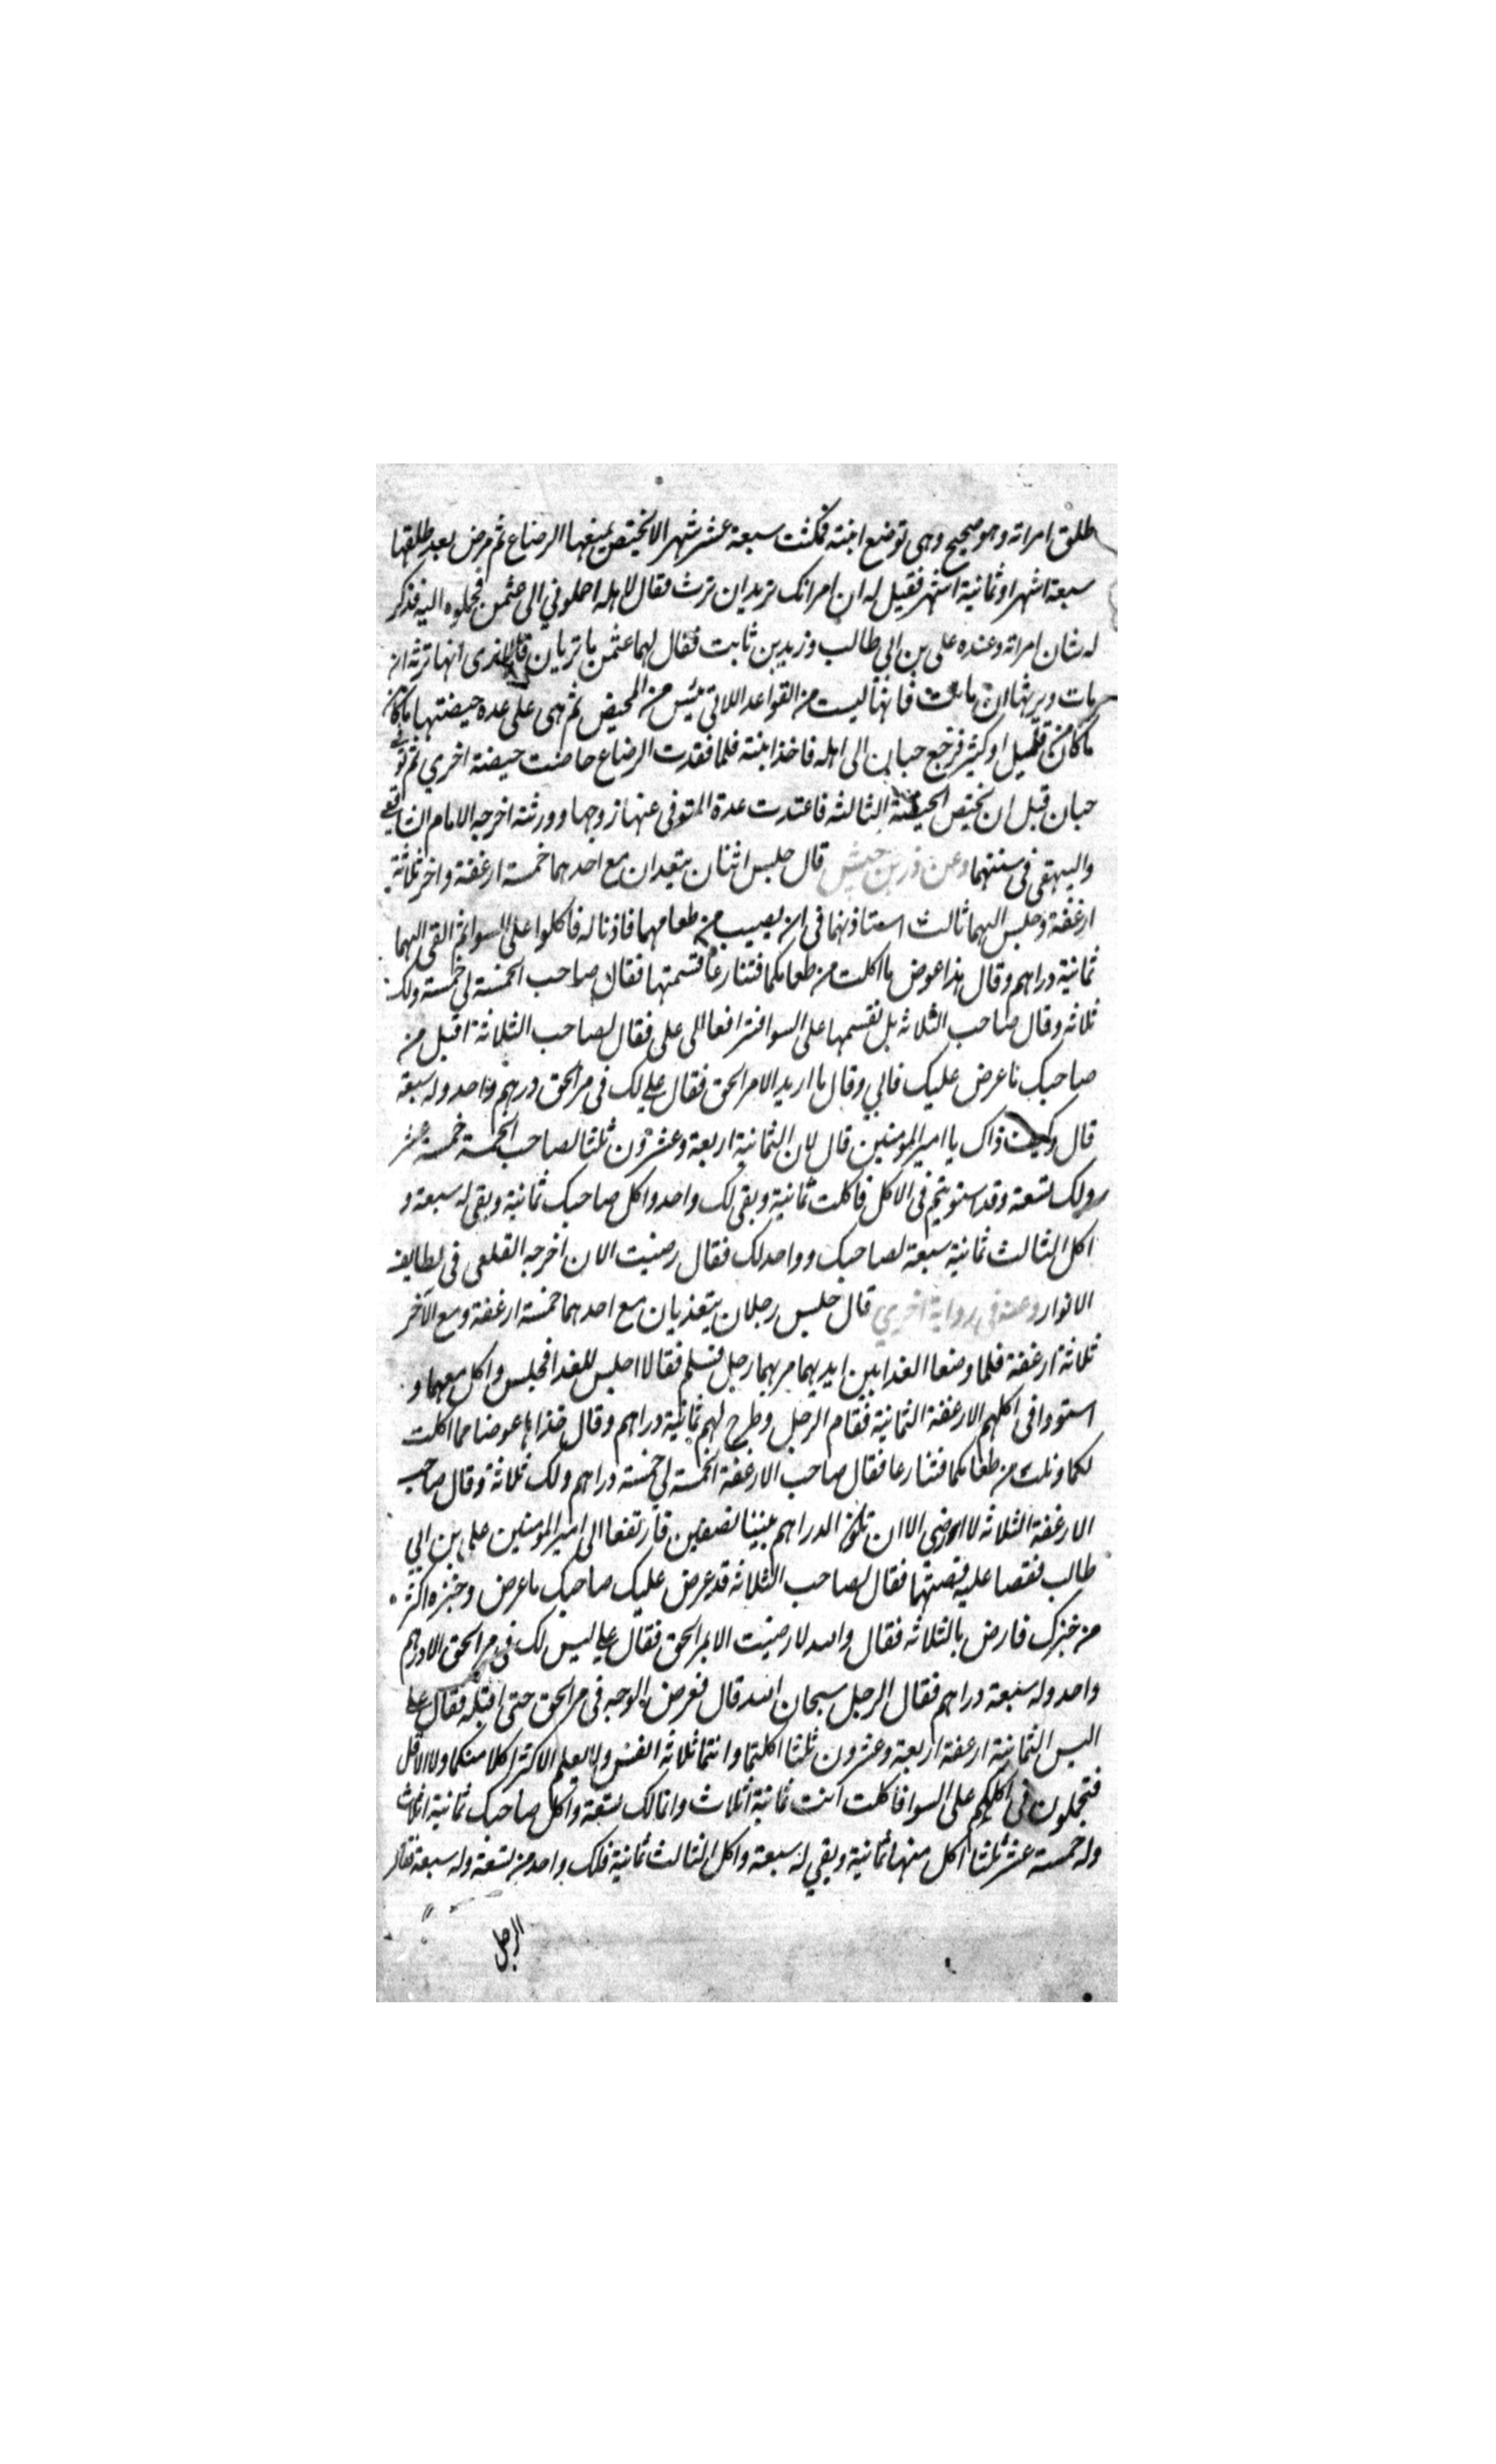 طلق امراته وهو صحيح وهى توضع ابنته فمكثت سبعة عشر شهرا لا تحيض يمنعها الرضاع ثم مرض بعد طلقها
سبعة اشهر او ثمانية اشهر فقيل له ان امراتك تريد ان ترث فقال لاهله احملونى الى عثمن فحملوه اليه فذكر
له شان امراته وعنده على بن ابي طالب وزيد بن ثابت فقال لهما عثمن ما تريان قالا نرى انها ترثه ان
مات ويرثها ان ماتت فانها ليست من القواعد اللاتي يئس من المحيض ثم هى على عدة حيضتها ما كان
ما كان من قليل او كثير فرجع حبان الى اهله فاخذ ابنته فلما فقدت الرضاع حاضت حيضة اخري ثم توفي
حبان قبل ان تحيض الحيضة الثالثه فاعتدت عدة المتوفى عنها زوجها وورثته اخرجه الامام الشافعي
والبيهقى فى سننهما وعن زر بن حبيش قال جلس اثنان يتغديان مع احدهما خمسة ارغفة واخر ثلاثة
ارغفة وجلس اليهما ثالث استاذنهما فى ان يصيب من طعامهما فاذنا له فاكلوا على السوا ثم القى اليهما
ثمانية دراهم وقال هذا عوض ما اكلت من طعامكما فتنازعا قسمتها فقال صاحب الخمسة لى خمسة ولك
ثلاثه وقال صاحب الثلاثه بل نقسمها على السوا فترافعا الى على فقال لصاحب الثلاثة اقبل من
صاحبك ما عرض عليك فابي وقال ما اريد الا مر الحق فقال على لك فى مر الحق درهم واحد وله سبعة
قال وكيف ذاك يا امير المومنين قال لان الثمانية اربعة وعشرون ثلثا لصاحب الخمسة خمسة عشر
ولك تسعة وقد استويتم فى الاكل فاكلت ثمانية وبقى لك واحد واكل صاحبك ثمانية وبقى له سبعة و
اكل الثالث ثمانية سبعة لصاحبك وواحد لك فقال رضيت الان اخرجه القلعى فى لطايف
الانوار وعنه فى رواية اخري قال جلس رجلان يتغذيان مع احدهما خمسة ارغفة ومع الاخر
ثلاثة ارغفة فلما وضعا الغدا بين ايديهما مر بهما رجل فسلم فقالا اجلس للغدا فجلس واكل معهما و
استووا فى اكلهم الارغفة الثمانية فقام الرجل وطرح لهم ثمانية دراهم وقال خذاها عوضا مما اكلت
لكما ونلت من طعامكما فتنازعا فقال صاحب الارغفة الخمسة لى خمسة دراهم ولك ثلاثة وقال صاحب
الارغفة الثلاثه لا ارضى الا ان تكون الدراهم بيننا نصفين فارتفعا الى امير المومنين على بن ابي
طالب فقصا عليه قصتهما فقال لصاحب الثلاثه قد عرض عليك صاحبك ما عرض وخبزه اكثر
من خبزك فارض بالثلاثه فقال والله لا رضيت الا بمر الحق فقال على ليس لك فى مر الحق الا درهم
واحد وله سبعة دراهم فقال الرجل سبحان الله قال فعرض الوجه فى مر الحق حتى اقبله فقال على
اليس الثمانية ارغفة اربعة وعشرون ثلثا اكلتما وانتما ثلاثه انفس ولا يعلم الاكثر اكلا منكما ولا الاقل
فتحملون فى اكلكم على السوا فاكلت انت ثمانية اثلاث وانما لك تسعة واكل صاحبك ثمانية اثلاث
وله خمسة عشر ثلثا اكل منها ثمانية وبقي له سبعة واكل الثالث ثمانية فلك واحد من تسعة وله سبعة فقال
الرجل